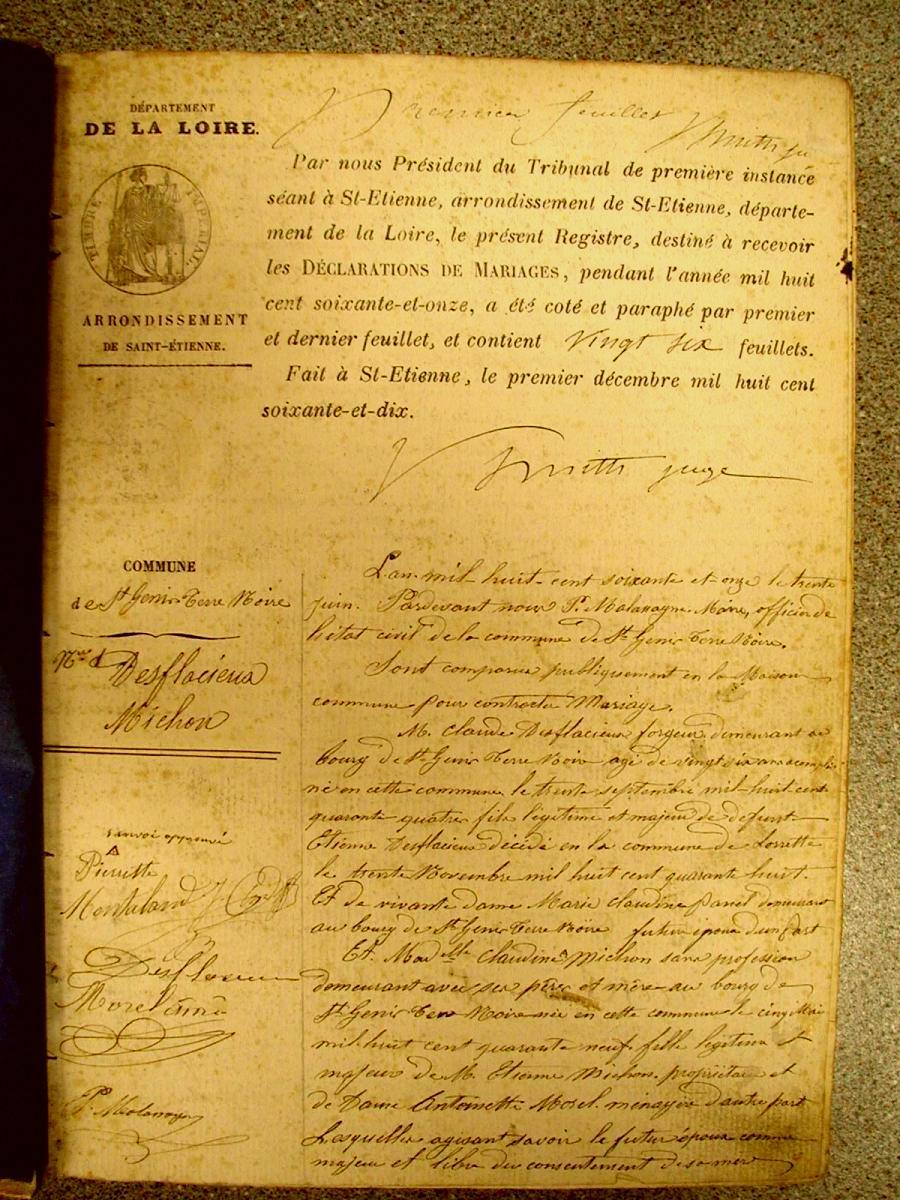 DÉPARTEMENT
DE LA LOIRE.
TIMBRE IMPÉRIAL
ARRONDISSEMENT
DE SAINT-ÉTIENNE.
Premier feuillet
Smith ju
Par nous Président du Tribunal de première instance
séant à St-Etienne, arrondissement de St-Etienne, départe-
ment de la Loire, le présent Registre, destiné à recevoir
les DÉCLARATIONS DE MARIAGES, pendant l'année mil huit
cent soixante-et-onze, a été coté et paraphé par premier
et dernier feuillet, et contient Vingt six feuillets.
Fait à St-Etienne, le premier décembre mil huit cent
soixante-et-dix.
Smith juge
COMMUNE
de St Genis Terre Noire
Desflacieux
Michon
renvoi approuvé
Pierrette
Montaland
Desflacieux
Morel
P. Malassagne
L'an mil huit cent soixante et onze le trente
juin. Pardevant nous P. Malassagne Maire, officier de
l'état civil de la commune de St Genis Terre Noire.
Sont comparus publiquement en la Maison
commune pour contracter Mariage.
M. Claude Desflacieux forgeur demeurant au
bourg de St Genis Terre Noire agé de vingt six ans accomplis
né en cette commune le trente septembre mil huit cent
quarante quatre fils légitime et majeur de defunt
Etienne Desflacieux décédé en la commune de Lorrette
le trente Novembre mil huit cent quarante huit.
Et de vivante dame Marie Claudine Panel demeurant
au bourg de St Genis Terre Noire futur époux d'une part
Et Madelle Claudine Michon sans profession
demeurant avec ses père et mère au bourg de
St Genis Terre Noire née en cette commune le cinq Mai
mil huit cent quarante neuf fille légitime et
majeure de M. Etienne Michon propriétaire et
de Dame Antoinette Morel ménagère d'autre part
Lesquelles agissant savoir le futur époux comme
majeur et libre du consentement de sa mère